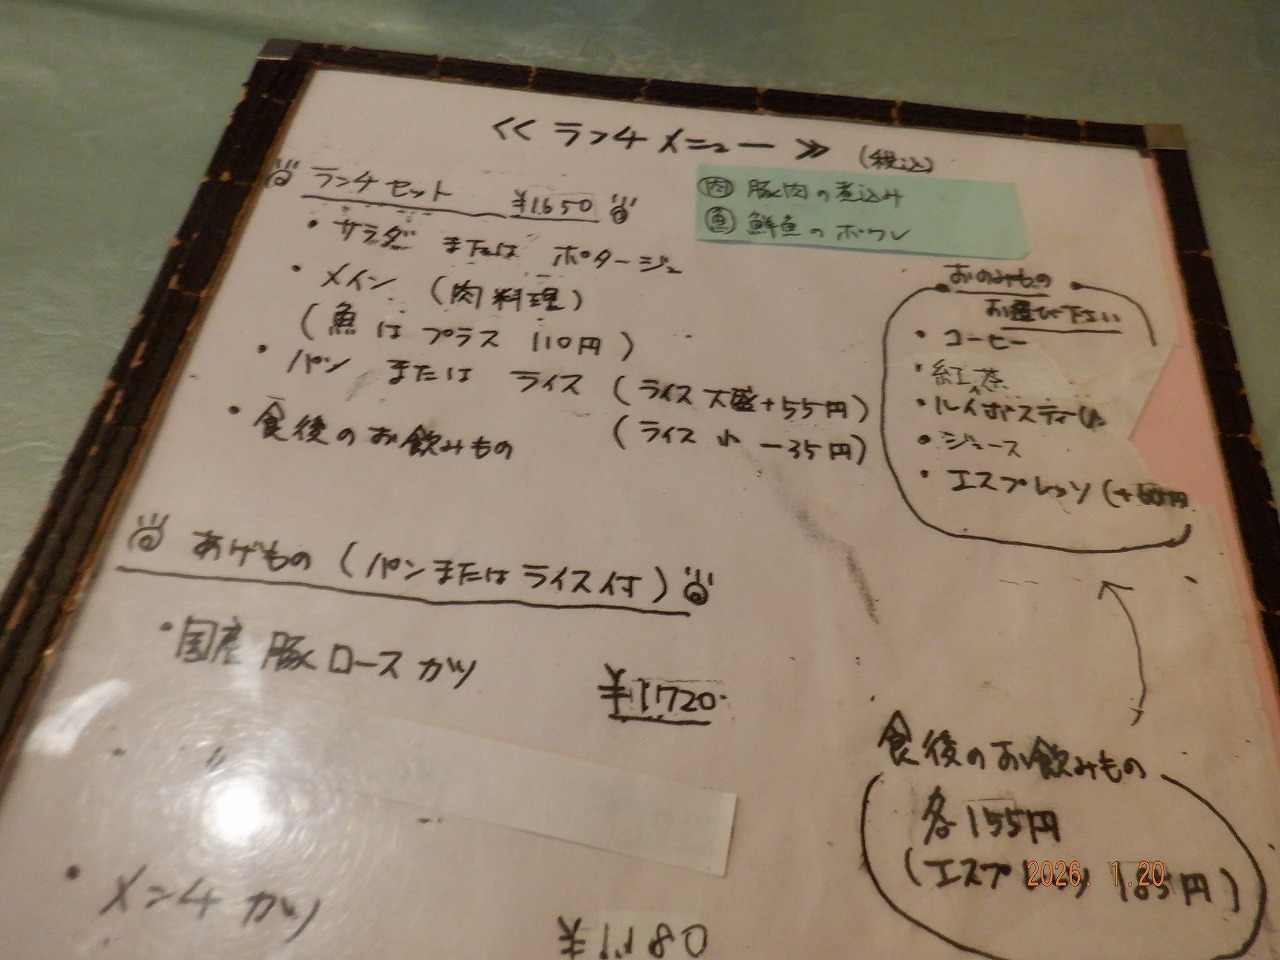 ≪ランチメニュー≫ (税込)
ランチセット ¥1650
㊍ 豚肉の煮込み
魚 鮮魚のポワレ
・サラダ または ポタージュ
・メイン (肉料理)
(魚はプラス 110円)
・パン または ライス (ライス大盛+55円)
(ライス小 -35円)
・食後のお飲みもの
おのみもの
お選び下さい
・コーヒー
・紅茶
・ルイボスティー
・ジュース
・エスプレッソ (+60円
あげもの (パンまたはライス付)
・国産豚ロースカツ ¥1,720
・メンチカツ ¥1,180
食後のお飲みもの
各155円
(エスプレッソ 円)
2026. 1.20